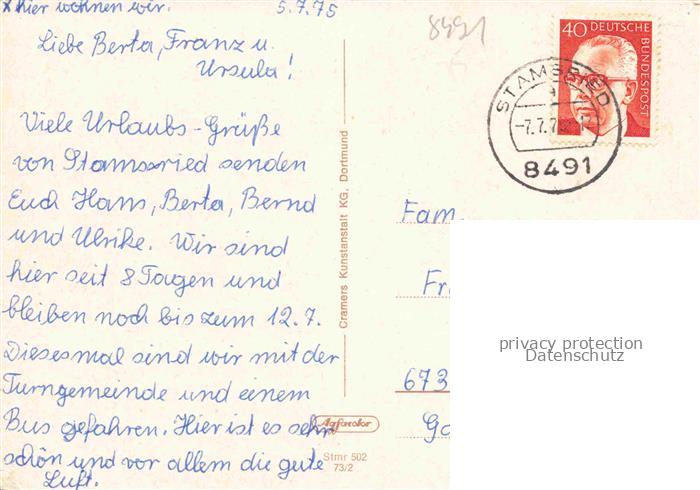 x hier wohnen wir. 5.7.75
Liebe Berta, Franz u.
Ursula!
Viele Urlaubs-Grüße
von Stamsried senden
Euch Hans, Berta, Bernd
und Ulrike. Wir sind
hier seit 8 Tagen und
bleiben noch bis zum 12.7.
Diesesmal sind wir mit der
Turngemeinde und einem
Bus gefahren. Hier ist es sehr
schön und vor allem die gute
Luft.
Cramers Kunstanstalt KG, Dortmund
Agfacolor
Stmr 502
73/2
8491
40 DEUTSCHE
BUNDESPOST
STAMSRIED
-7.7.7
8491
Fam.
Fr
673
privacy protection
Datenschutz